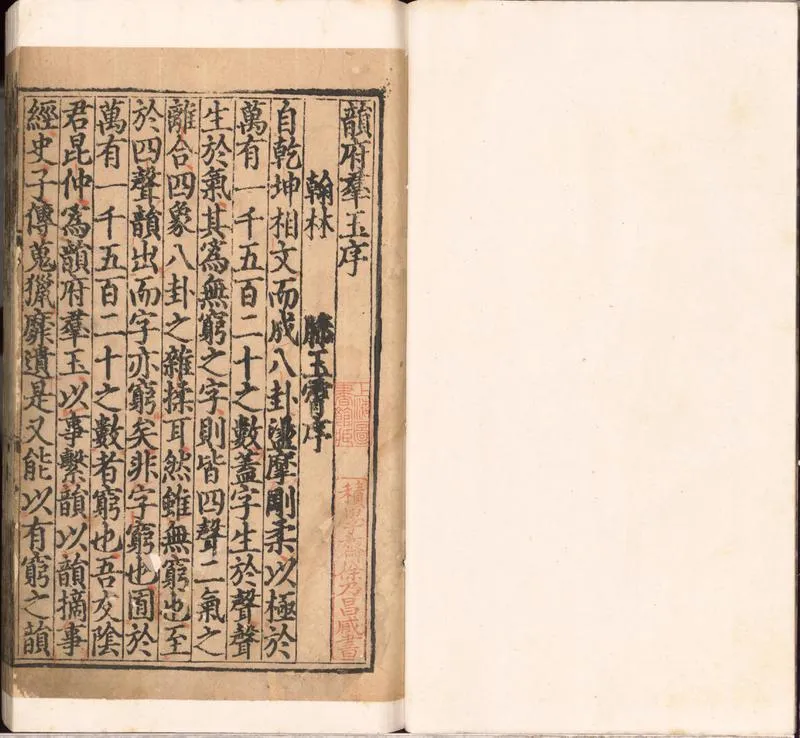 韻府羣玉序
翰林　滕玉霄序
自乾坤相文而成八卦盪摩剛柔以極於
萬有一千五百二十之數蓋字生於聲聲
生於氣其爲無窮之字則皆四聲二氣之
離合四象八卦之雜揉耳然雖無窮也至
於四聲韻出而字亦窮矣非字窮也囿於
萬有一千五百二十之數者窮也吾友陰
君昆仲爲韻府羣玉以事繫韻以韻摘事
經史子傳蒐獵靡遺是又能以有窮之韻
上海圖書館藏
積學齋徐乃昌藏書